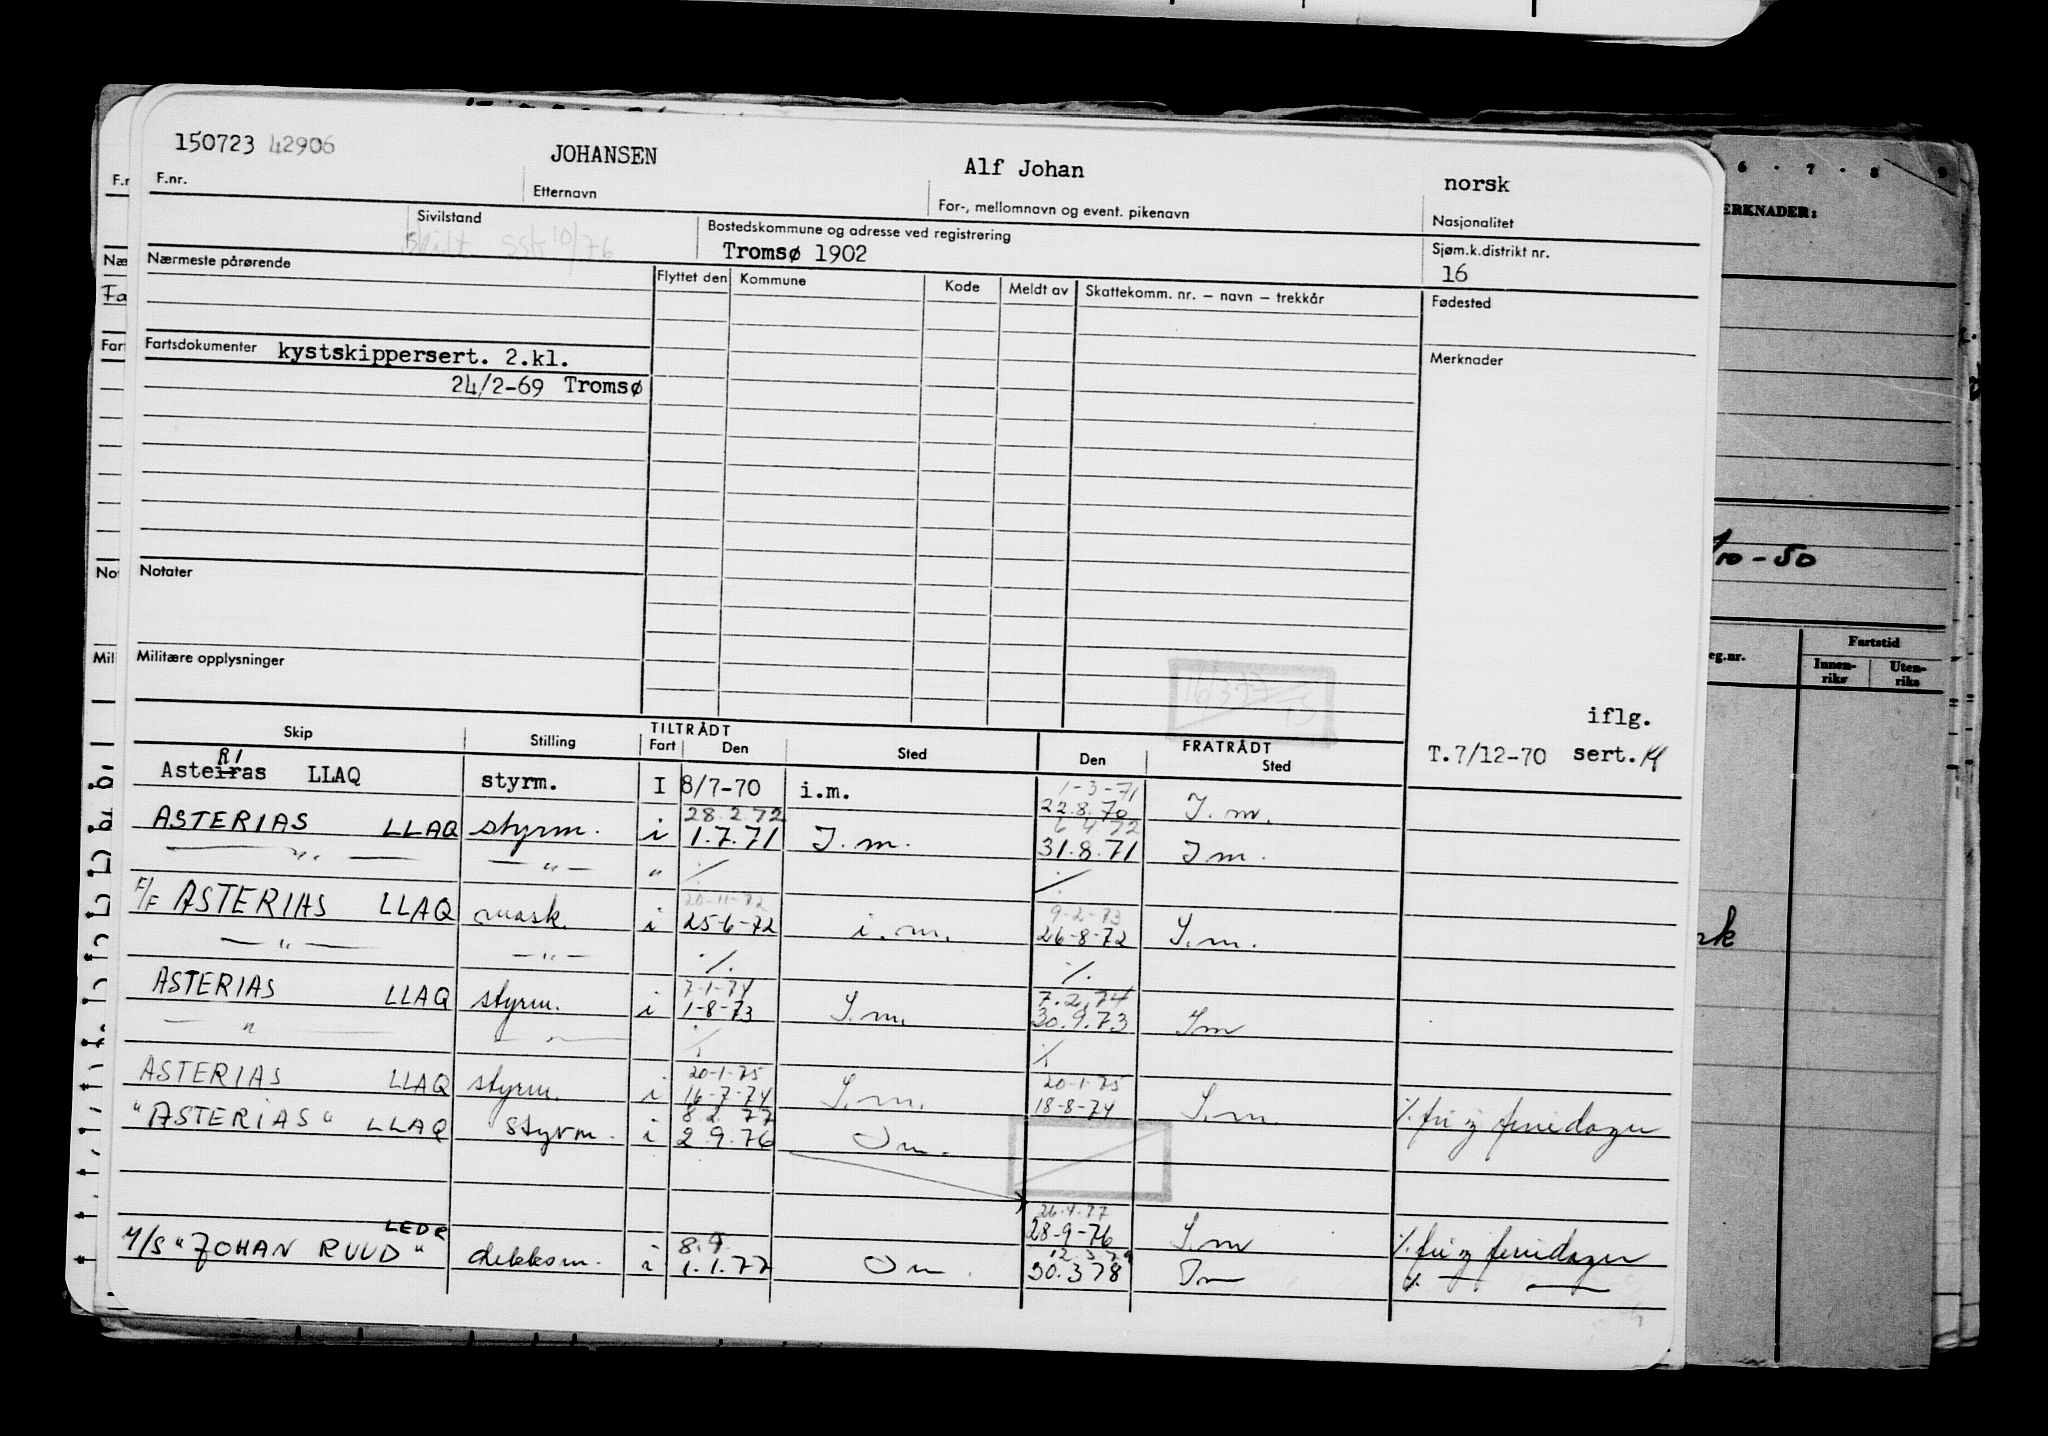 150723 42906 JOHANSEN Alf Johan norsk
F.nr. Etternavn For-, mellomnavn og event. pikenavn Nasjonalitet
Sivilstand Bostedskommune og adresse ved registrering Sjøm.k.distrikt nr.
Skilt SSb 10/76 Tromsø 1902 16
Nærmeste pårørende Flyttet den Kommune Kode Meldt av Skattekomm. nr. – navn – trekkår Fødested
Fartsdokumenter kystskippersert. 2.kl. Merknader
24/2-69 Tromsø
Notater
Militære opplysninger
16/377
iflg.
T.7/12-70 sert.
Skip Stilling TILTRÅDT FRATRÅDT
Fart Den Sted Den Sted
RI 1-3-71
Asteiras LLAQ styrm. I 8/7-70 i.m. 22.8.70 I.m.
28.2.72 6 4 72
ASTERIAS LLAQ styrm. i 1.7.71 I.m. 31.8.71 Im.
— " — — " — " ⁒ ⁒
20-11-72 9-2-73
F/F ASTERIAS LLAQ mask. i 25-6-72 i.m. 26-8-72 I.m.
— " — — " — ⁒ ⁒
7-1-74 7.2.74
ASTERIAS LLAQ styrm. i 1-8-73 I.m. 30.9.73 Im
— " — — " — ⁒ ⁒
20-1-75 20-1-75
ASTERIAS LLAQ styrm. i 16-7-74 I.m. 18-8-74 I.m. ⁒ fri og feriedager
8.2.77
"ASTERIAS" LLAQ styrm. i 2.9.76 Om.
26.4.77
28-9-76 I.m ⁒ fri og feriedager
LEDR 8.9. 12.3.79
M/S "JOHAN RUUD" dekksm. i 1.1.77 Om. 30.378 Im ⁒ — " —
6 · 7 · 8 9
ERKNADER:
/10-50
eg.nr. Fartstid
Innen-riks Uten-riks
F.n
Næ
Fa
Fart
Not
Mil